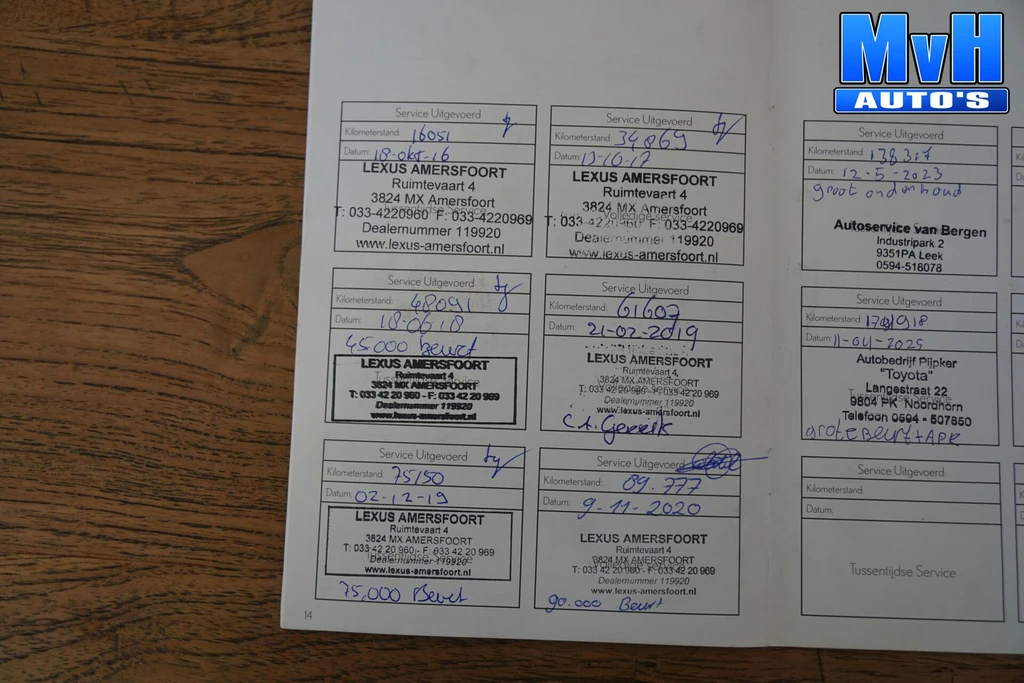 MvH
AUTO'S
Service Uitgevoerd
Kilometerstand: 16051
Datum: 18-okt-16
LEXUS AMERSFOORT
Ruimtevaart 4
3824 MX Amersfoort
T: 033-4220960 F: 033-4220969
Dealernummer 119920
www.lexus-amersfoort.nl
Service Uitgevoerd
Kilometerstand: 34069
Datum:
LEXUS AMERSFOORT
Ruimtevaart 4
3824 MX Amersfoort
Volledige service
T: 033-4220960 F: 033-4220969
Dealernummer 119920
www.lexus-amersfoort.nl
Service Uitgevoerd
Kilometerstand: 48091
Datum: 18-06-18
45.000 beurt
LEXUS AMERSFOORT
Ruimtevaart 4
3824 MX AMERSFOORT
T: 033 42 20 960 - F: 033 42 20 969
Dealernummer 119920
www.lexus-amersfoort.nl
Service Uitgevoerd
Kilometerstand: 61607
Datum: 21-02-2019
LEXUS AMERSFOORT
Ruimtevaart 4,
3824 MX AMERSFOORT
T: 033 42 20 960 - F: 033 42 20 969
Dealernummer 119920
www.lexus-amersfoort.nl
Service Uitgevoerd
Kilometerstand: 75150
Datum: 02-12-19
LEXUS AMERSFOORT
Ruimtevaart 4
3824 MX AMERSFOORT
T: 033 42 20 960 - F: 033 42 20 969
Tussentijdse Service
Dealernummer 119920
www.lexus-amersfoort.nl
75,000 Beurt
Service Uitgevoerd
Kilometerstand: 89.777
Datum: 9-11-2020
LEXUS AMERSFOORT
Ruimtevaart 4
3824 MX AMERSFOORT
T: 033 42 20 960 - F: 033 42 20 969
Dealernummer 119920
www.lexus-amersfoort.nl
90.000 Beurt
14
Service Uitgevoerd
Kilometerstand: 138317
Datum: 12-5-2023
groot onderhoud
Autoservice van Bergen
Industripark 2
9351PA Leek
0594-518078
Service Uitgevoerd
Kilometerstand:
Datum: 11-04-2025
Autobedrijf Pijpker
"Toyota"
Langestraat 22
9804 PK Noordhorn
Telefoon 0594 - 507850
grote Beurt + APK
Service Uitgevoerd
Kilometerstand:
Datum:
Tussentijdse Service